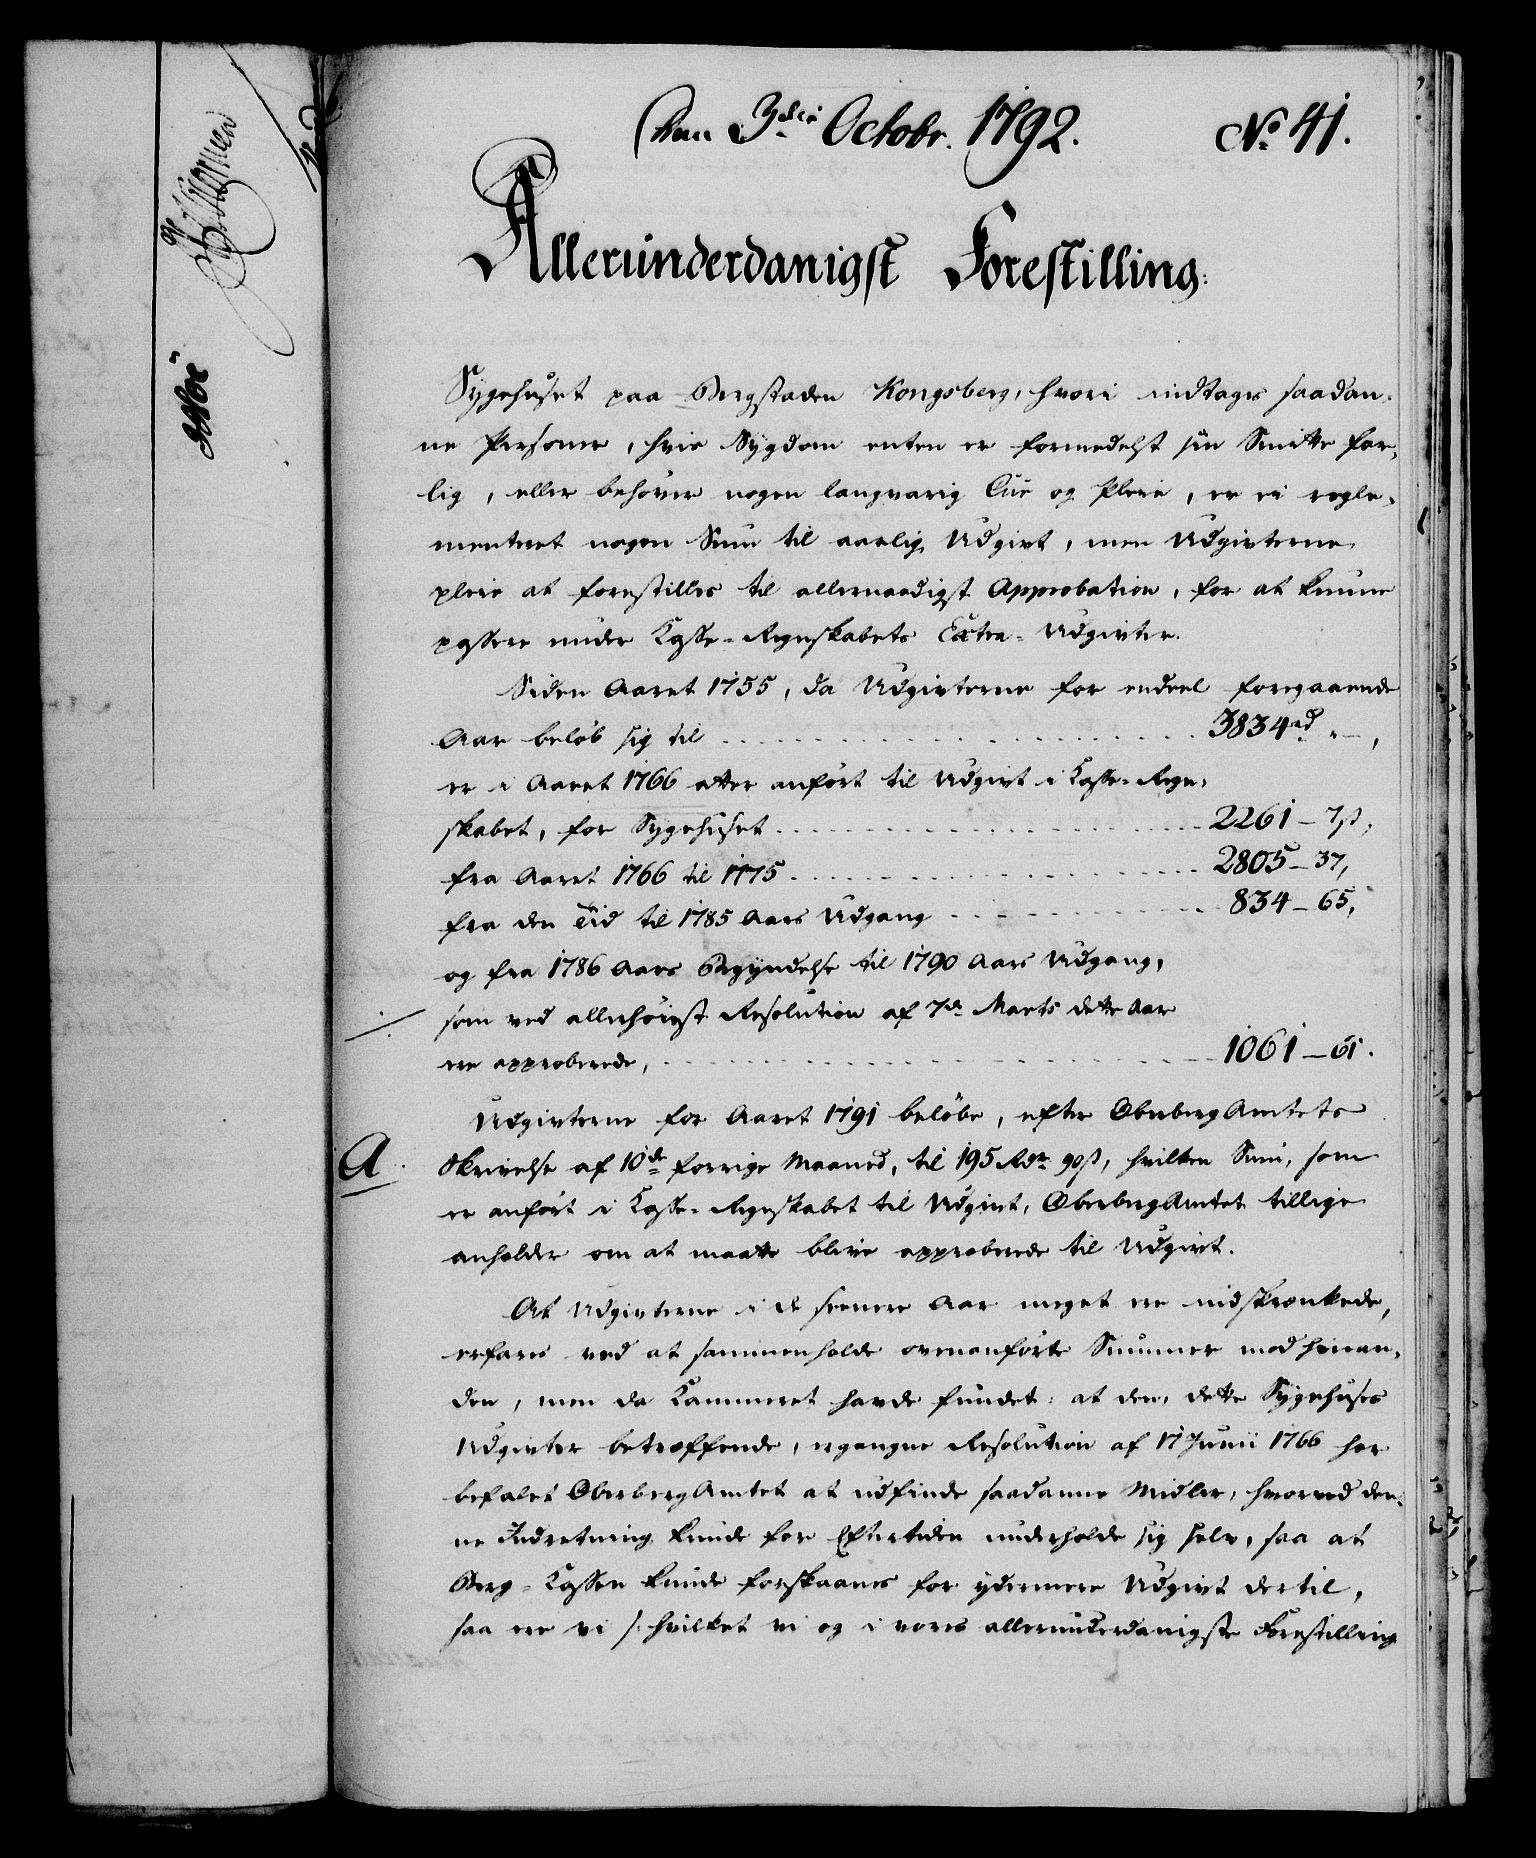 Den 3die Octobr. 1792. No. 41.
Allerunderdanigst Forestilling:
Sygehuset paa Bergstaden Kongsberg, hvori indtages saadan-
ne Personer, hvis Sygdom enten er formedelst sin Smitte far-
lig, eller behøver nogen langvarig Cur og Pleie, er ei regle-
menteret nogen Sum til aarlig Udgivt, men Udgivterne
pleie at forestilles til allernaadigst Approbation, for at kunne
passere under Casse-Regnskabets Extra-Udgivter.
Siden Aaret 1755, da Udgivterne for endeel foregaaende
Aar beløb sig til 3834 rd " — ,
er i Aaret 1766 atter anført til Udgivt i Casse-Regn-
skabet, for Sygehuset 2261 — 7 ß,
fra Aaret 1766 til 1775 2805 — 37,
fra den Tid til 1785 Aars Udgang 834 — 65,
og fra 1786 Aars Begyndelse til 1790 Aars Udgang,
som ved allerhøiest Resolution af 7de Marts dette Aar
ere approberede, 1061 — 61.
Udgivterne for Aaret 1791 beløbe, efter OberbergAmtets
A. Skrivelse af 10de forrige Maaned, til 195 Rdr 90 ß, hvilken Sum, som
er anført i Casse-Regnskabet til Udgivt, OberbergAmtet tillige
anholder om at maatte blive approberede til Udgivt.
At Udgivterne i de seenere Aar meget ere indskrænkede,
erfares ved at sammenholde ovenanførte Summer mod hinan-
den, men da Cammeret havde fundet: at den, dette Sygehuses
Udgivter betræffende, ergangne Resolution af 17 Junii 1766 har
befalet OberbergAmtet at udfinde saadanne Midler, hvorved den-
ne Indretning kunde for Eftertiden underholde sig selv, saa at
Berg-Cassen kunde forskaanes for ydermere Udgivt dertil,
saa ere vi /: hvilket vi og i vores allerunderdanigste Forestilling